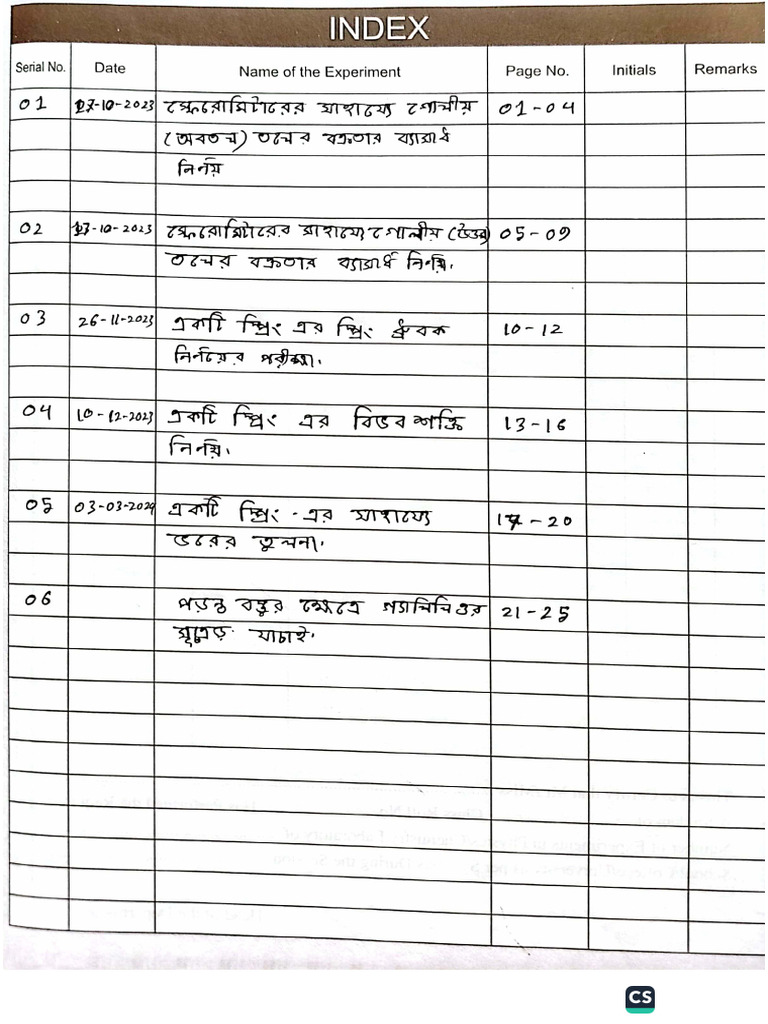 INDEX
Serial No. Date Name of the Experiment Page No. Initials Remarks
01 17-10-2023 স্ফেরোমিটারের সাহায্যে গোলীয় 01-04
(অবতল) তলের বক্রতার ব্যাসার্ধ
নির্ণয়
02 23-10-2023 স্ফেরোমিটারের সাহায্যে গোলীয় (উত্তল) 05-09
তলের বক্রতার ব্যাসার্ধ নির্ণয়।
03 26-11-2023 একটি স্প্রিং এর স্প্রিং ধ্রুবক 10-12
নির্ণয়ের পরীক্ষা।
04 10-12-2023 একটি স্প্রিং এর বিভব শক্তি 13-16
নির্ণয়।
05 03-03-2024 একটি স্প্রিং-এর সাহায্যে 17-20
ভরের তুলনা।
06 পড়ন্ত বস্তুর ক্ষেত্রে গ্যালিলিওর 21-25
যাচাই।
CS